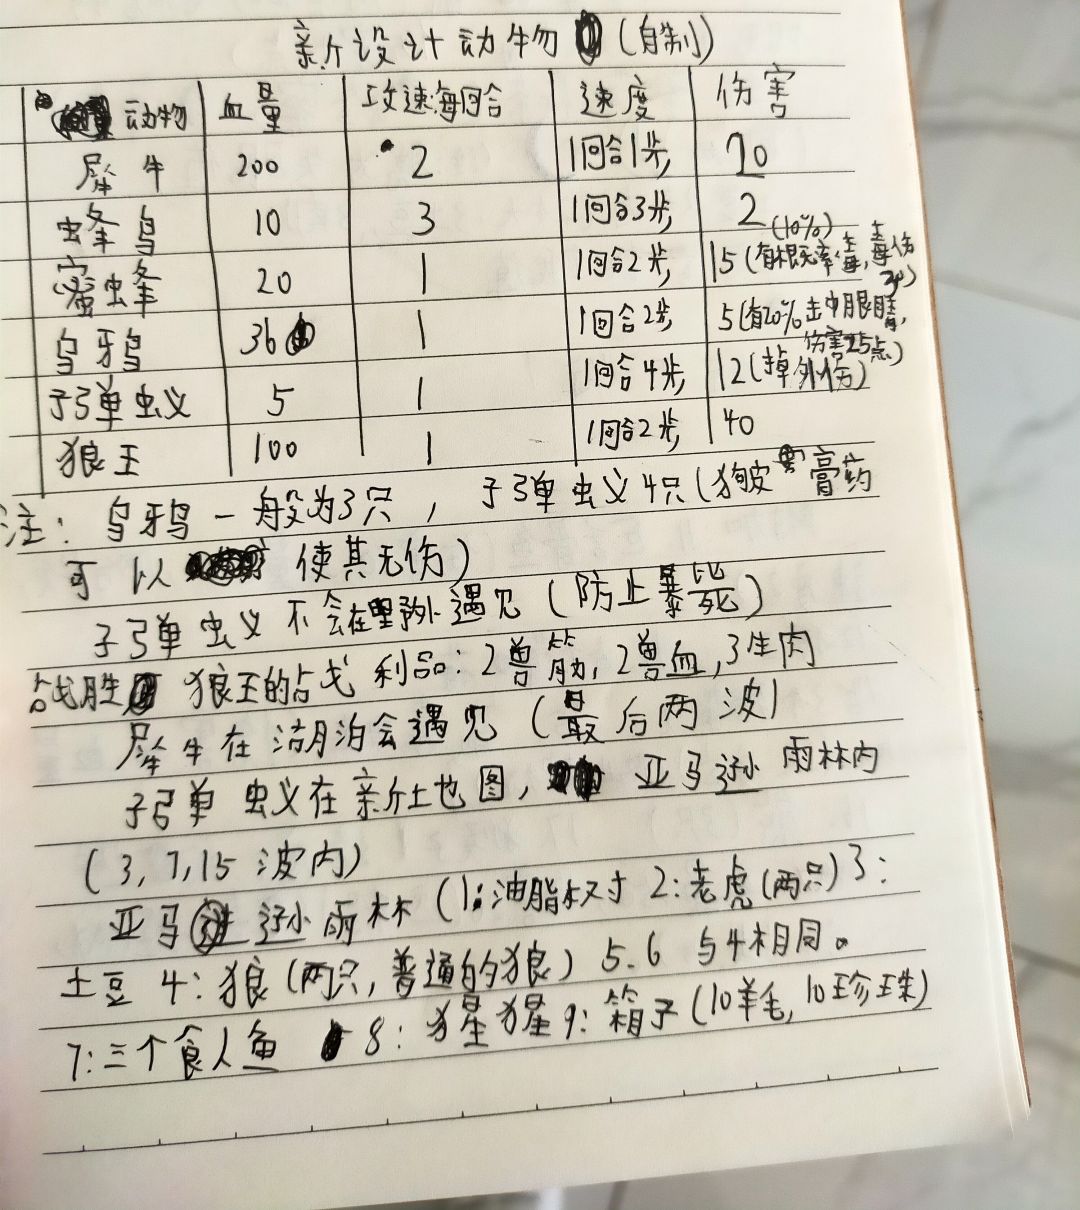 新设计动物（自制）
动物 血量 攻速每回合 速度 伤害
犀牛 200 2 1回合1步 20
蜂鸟 10 3 1回合3步 2
蜜蜂 20 1 1回合2步 15（有概率毒，毒伤30）（10%）
乌鸦 36 1 1回合2步 5（有20%击中眼睛，伤害25点）
子弹蚁 5 1 1回合4步 12（掉外伤）
狼王 100 1 1回合2步 40
注：乌鸦一般为3只，子弹蚁4只（狗皮膏药
可以使其无伤）
子弹蚁不会在野外遇见（防止暴毙）
战胜狼王的战利品：2兽筋，2兽血，3生肉
犀牛在湖泊会遇见（最后两波）
子弹蚁在新地图，亚马逊雨林内
（3，7，15波内）
亚马逊雨林（1：油脂树 2：老虎（两只）3：
土豆 4：狼（两只，普通的狼）5.6 与4相同。
7：三个食人鱼 8：猩猩 9：箱子（10羊毛，10珍珠）